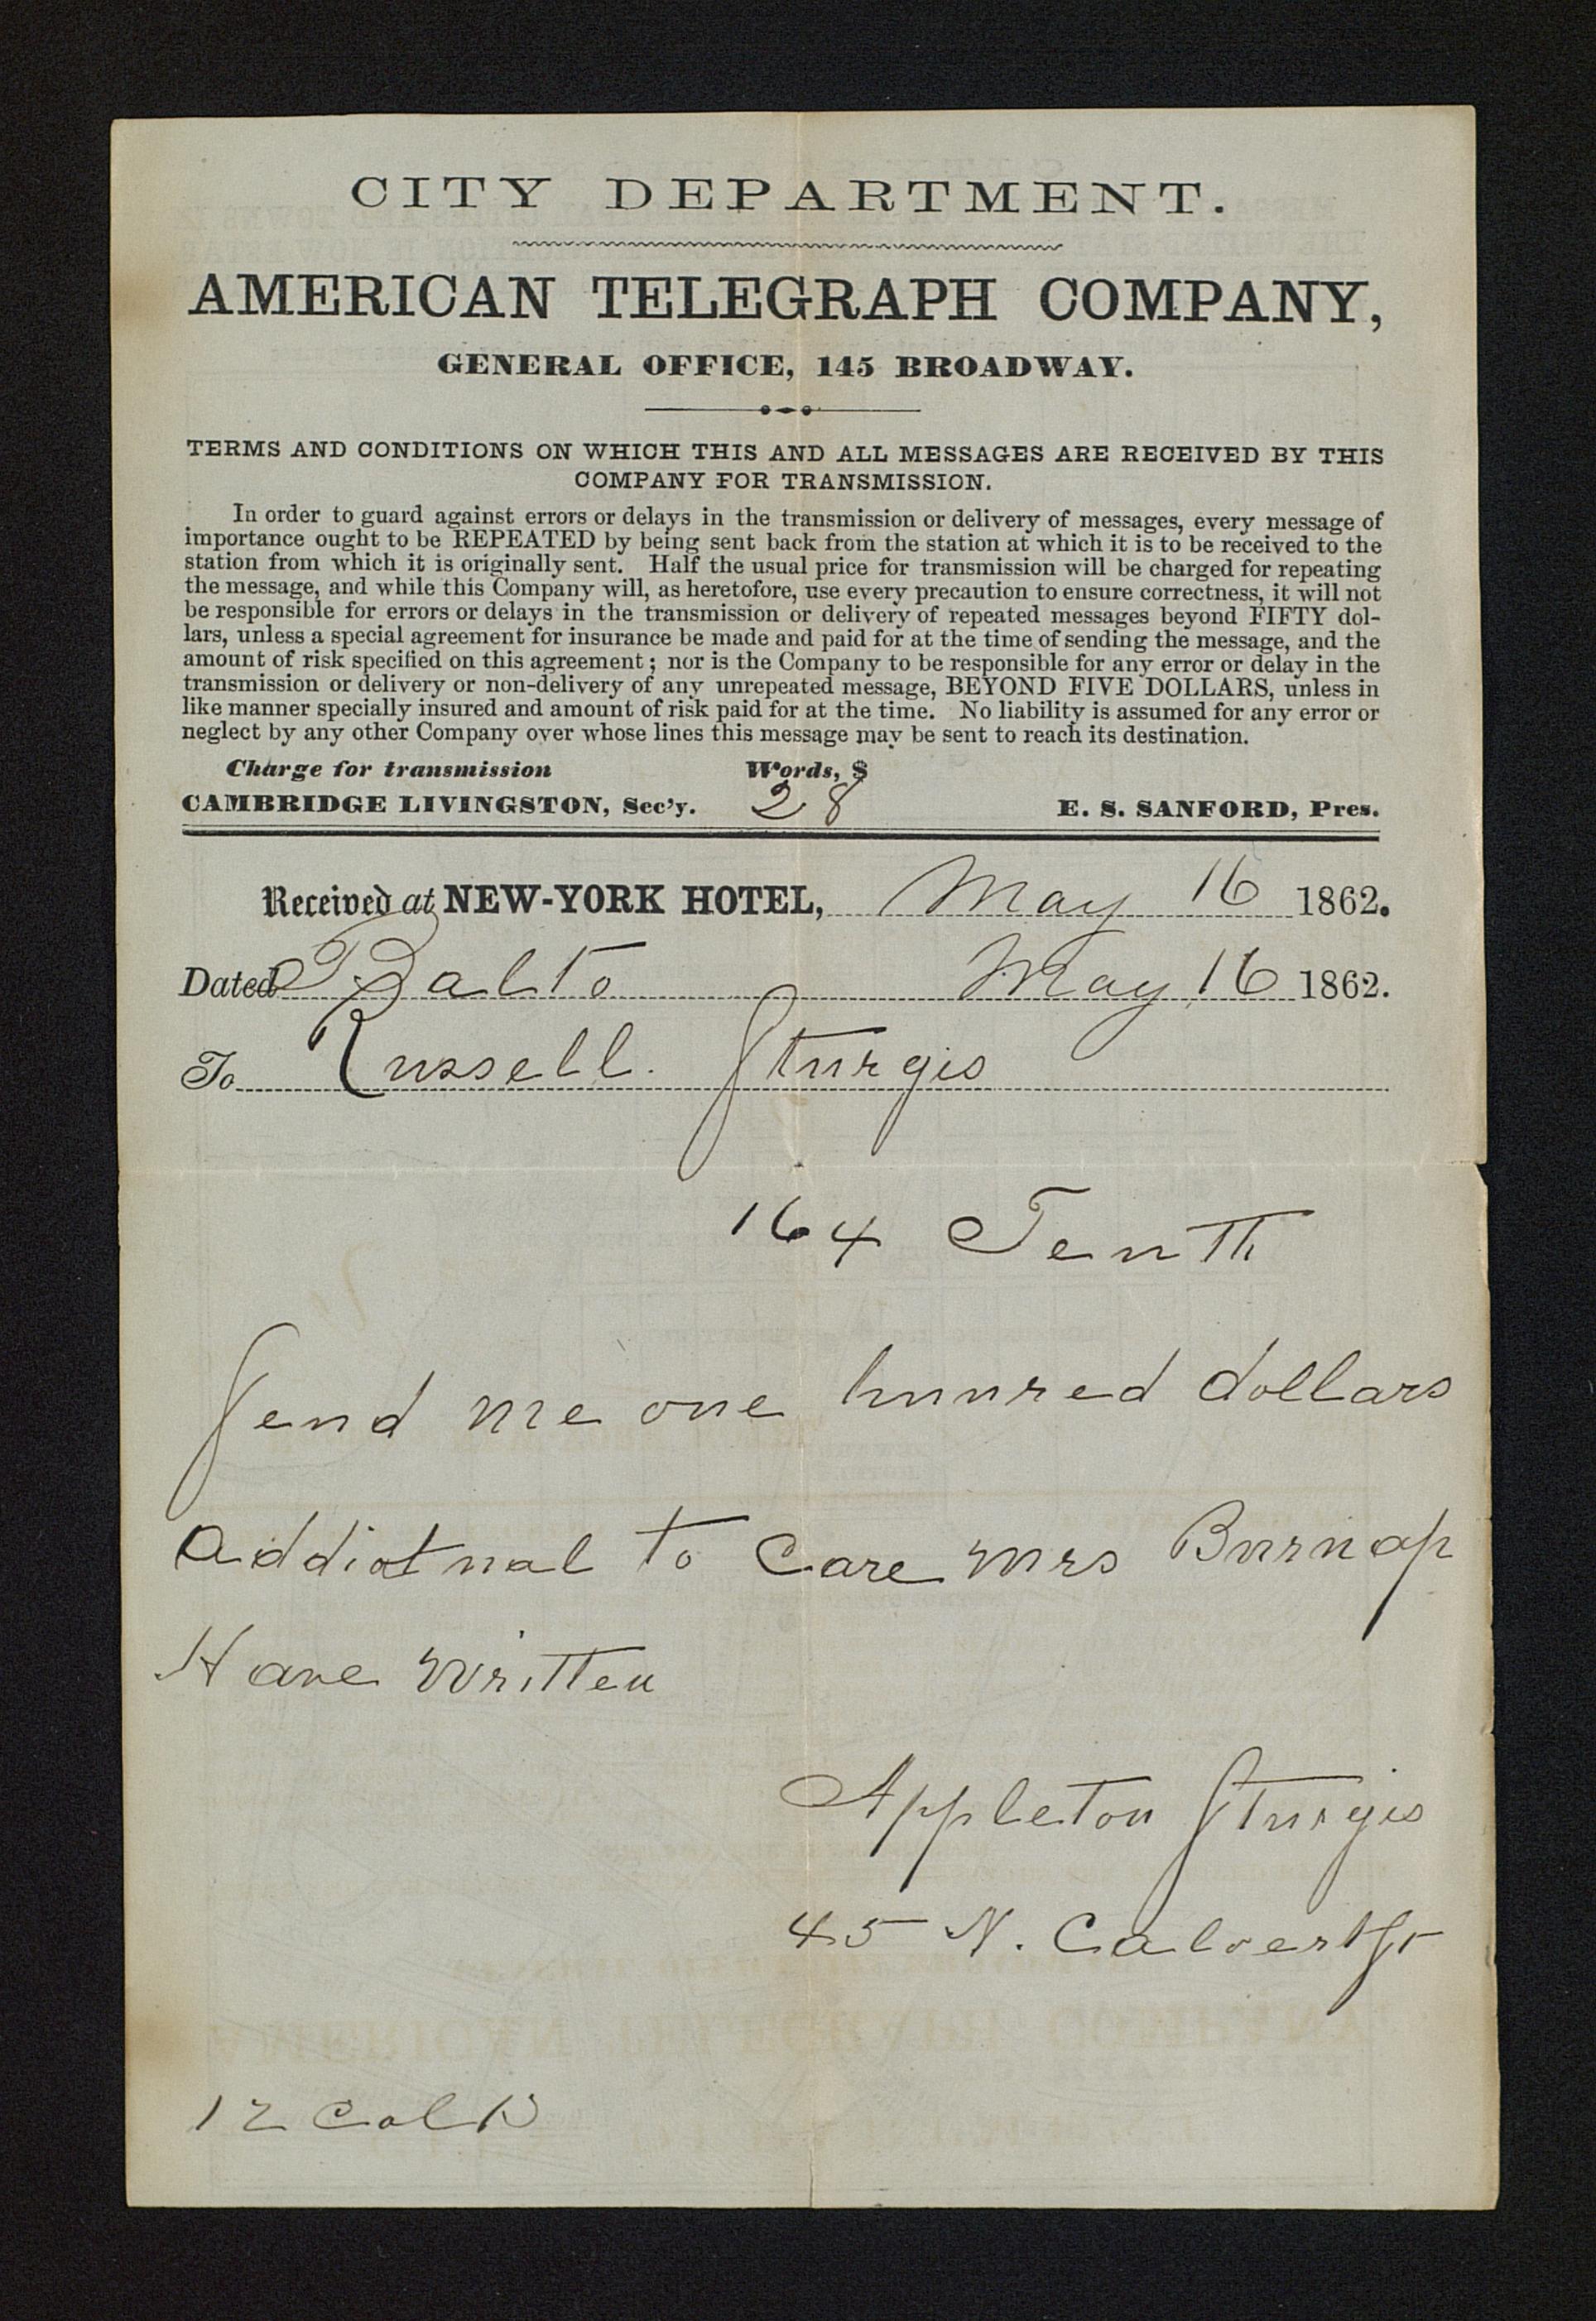 CITY DEPARTMENT.
AMERICAN TELEGRAPH COMPANY,
GENERAL OFFICE, 145 BROADWAY.
TERMS AND CONDITIONS ON WHICH THIS AND ALL MESSAGES ARE RECEIVED BY THIS
COMPANY FOR TRANSMISSION.
In order to guard against errors or delays in the transmission or delivery of messages, every message of
importance ought to be REPEATED by being sent back from the station at which it is to be received to the
station from which it is originally sent. Half the usual price for transmission will be charged for repeating
the message, and while this Company will, as heretofore, use every precaution to ensure correctness, it will not
be responsible for errors or delays in the transmission or delivery of repeated messages beyond FIFTY dol-
lars, unless a special agreement for insurance be made and paid for at the time of sending the message, and the
amount of risk specified on this agreement; nor is the Company to be responsible for any error or delay in the
transmission or delivery or non-delivery of any unrepeated message, BEYOND FIVE DOLLARS, unless in
like manner specially insured and amount of risk paid for at the time. No liability is assumed for any error or
neglect by any other Company over whose lines this message may be sent to reach its destination.
Charge for transmission Words, $
CAMBRIDGE LIVINGSTON, Sec'y. 28 E. S. SANFORD, Pres.
Received at NEW-YORK HOTEL, May 16 1862.
Dated Balto May 16 1862.
To Russell Sturgis
164 Tenth
Send me one hunred dollars
Addiotnal to Care Mrs Burnap
Have Written
Appleton Sturgis
45 N. Calvert St
12